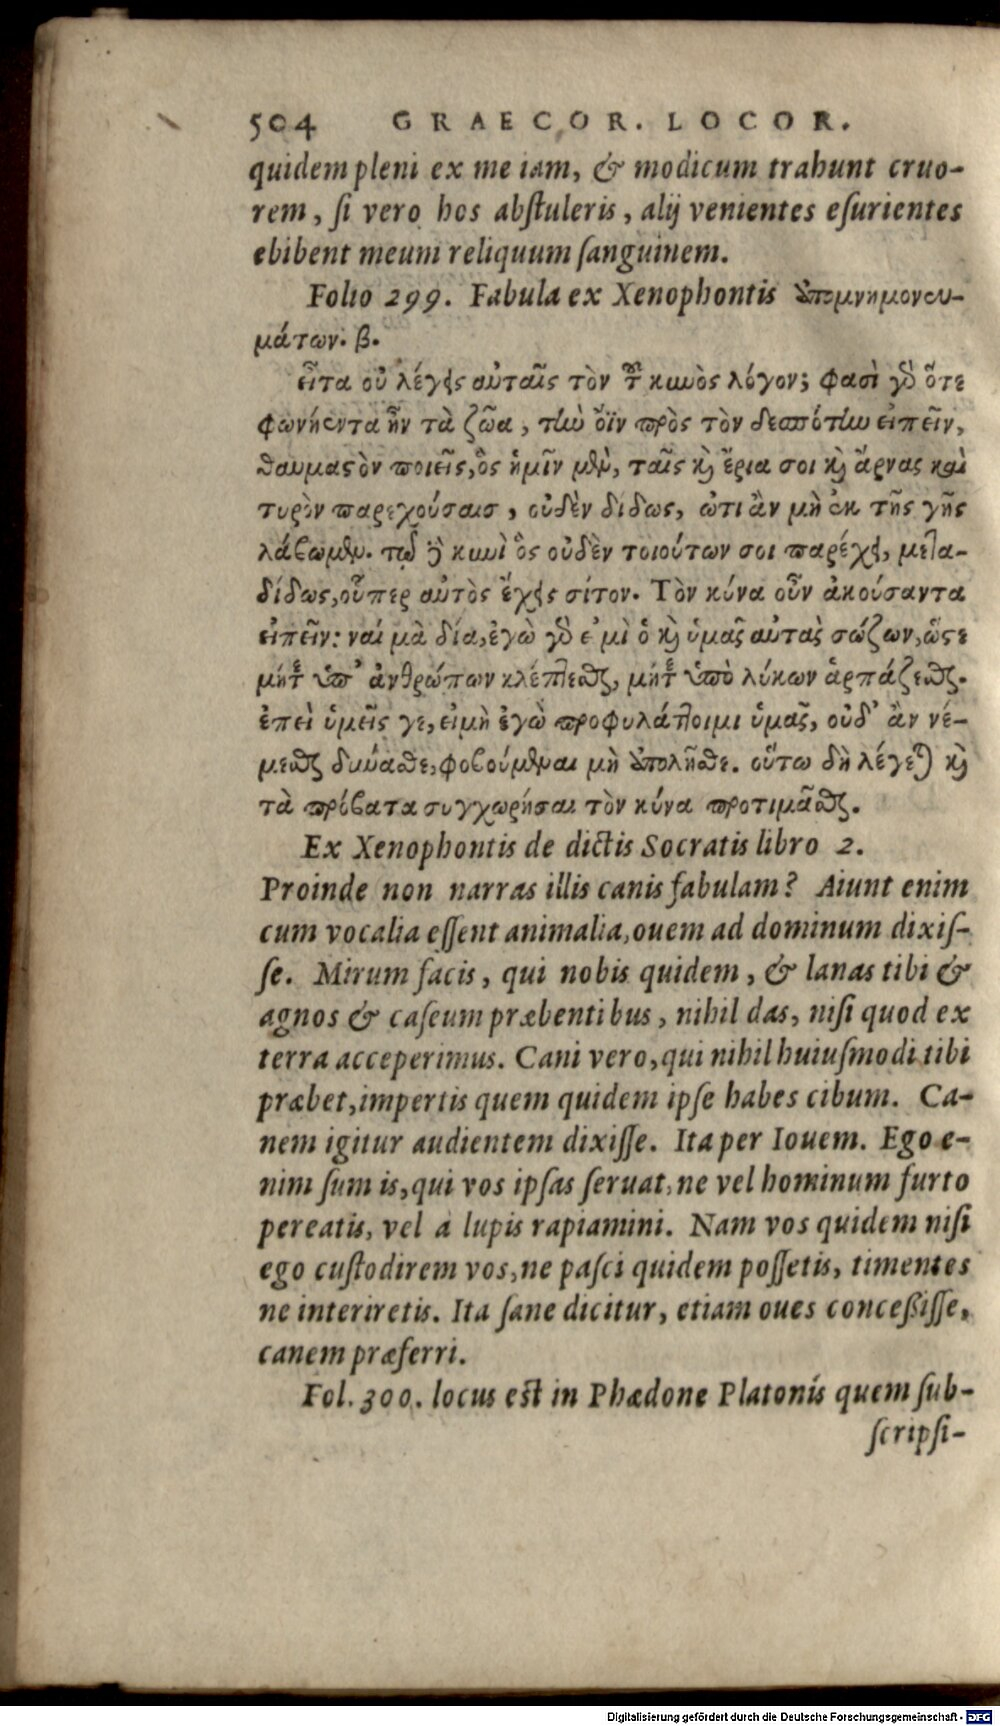 504 GRAECOR. LOCOR.
quidem pleni ex me iam, & modicum trahunt cruo-
rem, ſi vero hos abſtuleris, alij venientes eſurientes
ebibent meum reliquum ſanguinem.
Folio 299. Fabula ex Xenophontis ὑπομνημονευ-
μάτων. β.
εἶτα οὐ λέγεις αὐταῖς τὸν τοῦ κυνὸς λόγον; φασὶ γὸ ὅτε
φωνήεντα ἦν τὰ ζῶα, τὴν ὄϊν πρὸς τὸν δεσπότην εἰπεῖν,
θαυμαστὸν ποιεῖς, ὃς ἡμῖν μὲν, ταῖς καὶ ἔρια σοι καὶ ἄρνας καὶ
τυρὸν παρεχούσαισ, οὐδὲν δίδως, ὥτι ἂν μὴ ἐκ τῆς γῆς
λάβωμεν. τῷ δὲ κυνὶ ὃς οὐδὲν τοιούτων σοι παρέχει, μετα-
δίδως, οὗπερ αὐτὸς ἔχεις σίτον. Τὸν κύνα οὖν ἀκούσαντα
εἰπεῖν: ναί μὰ δία, ἐγὼ γὸ εἰμὶ ὁ καὶ ὑμᾶς αὐτὰς σώζων, ὥστε
μήτε ὑπ' ἀνθρώπων κλέπτεσθαι, μήτε ὑπὸ λύκων ἁρπάζεσθαι.
ἐπεὶ ὑμεῖς γε, εἰ μὴ ἐγὼ προφυλάττοιμι ὑμᾶς, οὐδ' ἂν νέ-
μεσθαι δύναισθε, φοβούμεναι μὴ ἀπολῆσθε. οὕτω δὴ λέγεται καὶ
τὰ πρόβατα συγχωρῆσαι τὸν κύνα προτιμᾶσθαι.
Ex Xenophontis de dictis Socratis libro 2.
Proinde non narras illis canis fabulam? Aiunt enim
cum vocalia eſſent animalia, ouem ad dominum dixiſ-
ſe. Mirum facis, qui nobis quidem, & lanas tibi &
agnos & caſeum præbentibus, nihil das, niſi quod ex
terra acceperimus. Cani vero, qui nihil huiuſmodi tibi
præbet, impertis quem quidem ipſe habes cibum. Ca-
nem igitur audientem dixiſſe. Ita per Iouem. Ego e-
nim ſum is, qui vos ipſas ſeruat, ne vel hominum furto
pereatis, vel a lupis rapiamini. Nam vos quidem niſi
ego cuſtodirem vos, ne paſci quidem poſſetis, timentes
ne interiretis. Ita ſane dicitur, etiam oues conceßiſſe,
canem præferri.
Fol. 300. locus eſt in Phædone Platonis quem ſub-
ſcripſi-
Digitalisierung gefördert durch die Deutsche Forschungsgemeinschaft - DFG